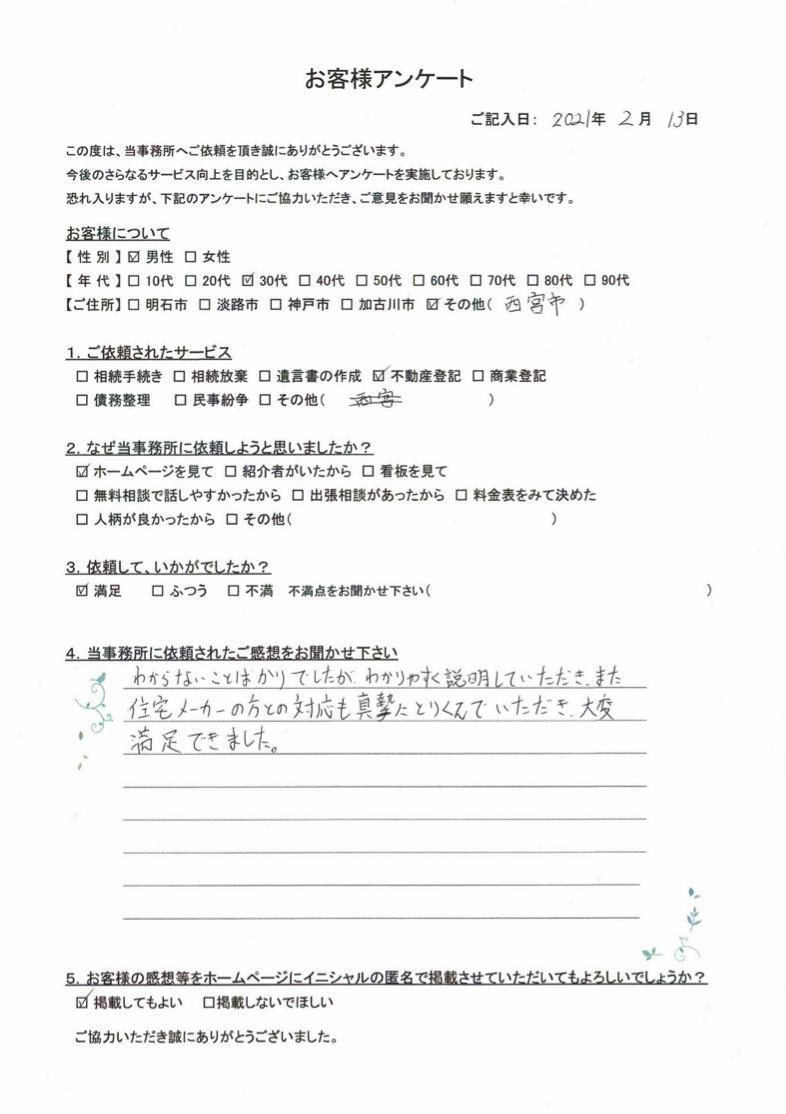 お客様アンケート
ご記入日： 2021年 2月 13日
この度は、当事務所へご依頼を頂き誠にありがとうございます。
今後のさらなるサービス向上を目的とし、お客様へアンケートを実施しております。
恐れ入りますが、下記のアンケートにご協力いただき、ご意見をお聞かせ願えますと幸いです。
お客様について
【 性 別 】☑ 男性 □ 女性
【 年 代 】□ 10代 □ 20代 ☑ 30代 □ 40代 □ 50代 □ 60代 □ 70代 □ 80代 □ 90代
【ご住所】□ 明石市 □ 淡路市 □ 神戸市 □ 加古川市 ☑ その他( 西宮市 )
1．ご依頼されたサービス
□ 相続手続き □ 相続放棄 □ 遺言書の作成 ☑ 不動産登記 □ 商業登記
□ 債務整理 □ 民事紛争 □ その他( 西宮 )
2．なぜ当事務所に依頼しようと思いましたか？
☑ ホームページを見て □ 紹介者がいたから □ 看板を見て
□ 無料相談で話しやすかったから □ 出張相談があったから □ 料金表をみて決めた
□ 人柄が良かったから □ その他( )
3．依頼して、いかがでしたか？
☑ 満足 □ ふつう □ 不満 不満点をお聞かせ下さい( )
4．当事務所に依頼されたご感想をお聞かせ下さい
わからないことばかりでしたが、わかりやすく説明していただき、また
住宅メーカーの方との対応も真摯にとりくんでいただき、大変
満足できました。
5．お客様の感想等をホームページにイニシャルの匿名で掲載させていただいてもよろしいでしょうか？
☑ 掲載してもよい □掲載しないでほしい
ご協力いただき誠にありがとうございました。